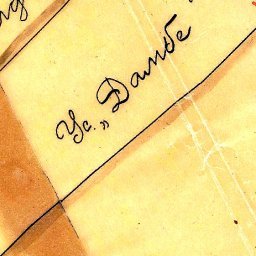 Ус. „Дамбе